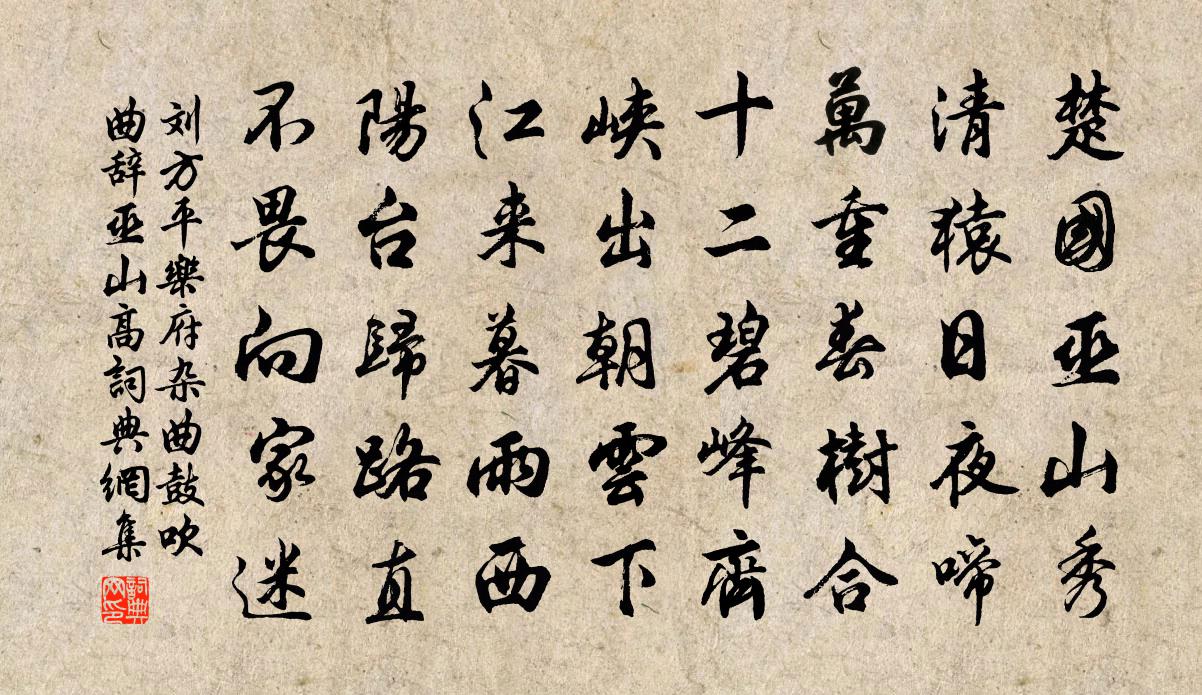 楚國巫山秀
清猿日夜啼
萬重春樹合
十二碧峰齊
峽出朝雲下
江来暮雨西
陽台歸路直
不畏向家迷
刘方平樂府杂曲鼓吹
曲辞巫山高詞典網集